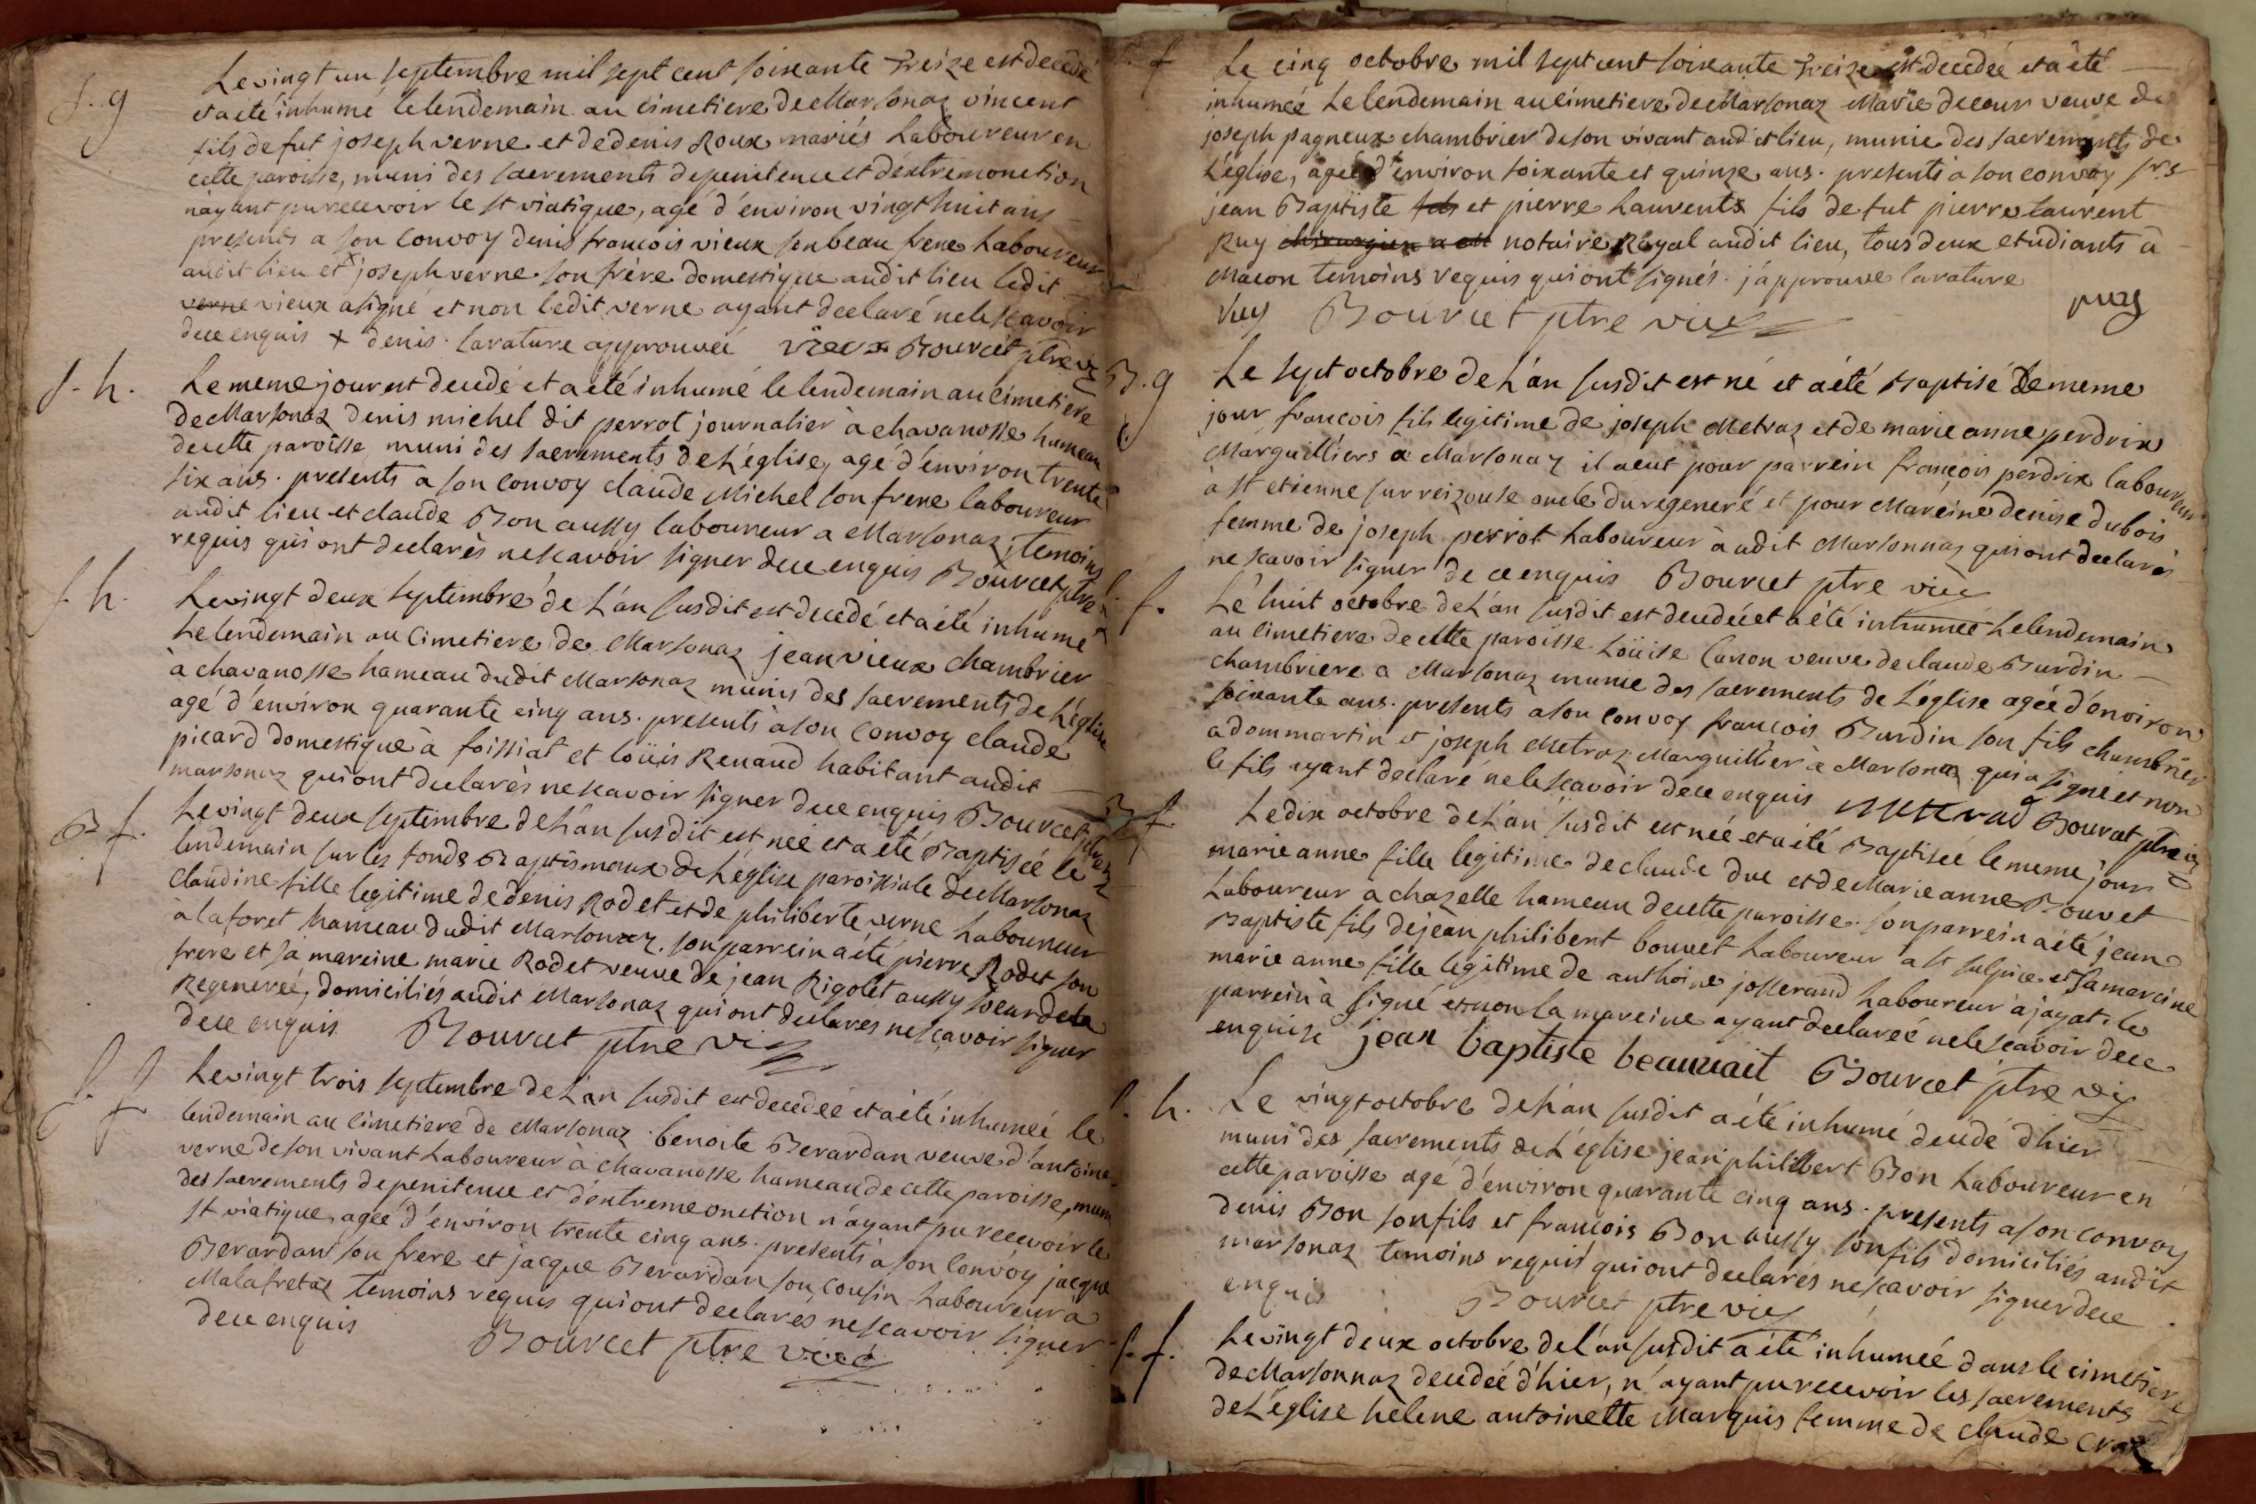 S. g
Le vingt un septembre mil sept cent soixante treize est decedé
et a eté inhumé le lendemain au cimetiere de Marsonaz vincent
fils de fut joseph verne et de denis Roux mariés Laboureur en
cette paroisse, muni des sacrements de penitence et d'extremonction
n'ayant pu recevoir le st viatique, agé d'environ vingt huit ans
presents a son convoy denis francois vieux son beau frere Laboureur
audit lieu et x joseph verne son frère domestique audit lieu ledit
verne vieux a signé et non ledit verne ayant declaré ne le scavoir
de ce enquis x denis. la rature approuvée vieux Bourcet ptre vic
S. h.
Le meme jour est decedé et a eté inhumé le lendemain au cimetiere
de Marsonaz denis michel dit perrot journalier à chavanosse hameau
de cette paroisse muni des sacrements de L'église, agé d'environ trente
six ans. presents a son convoy claude Michel son frere laboureur
audit lieu et claude Bon aussy laboureur a Marsonaz, temoins
requis qui ont declarés ne scavoir signer de ce enquis Bourcet ptre
S. h.
Le vingt deux septembre de L'an susdit est decedé et a été inhumé
Le lendemain au Cimetiere de Marsonaz jean vieux chambrier
à chavanosse hameau dudit Marsonaz munis des sacrements de L'église
agé d'environ quarante cinq ans. presents à son convoy claude
picard domestique à foissiat et loüis Renaud habitant audit
marsonaz qui ont declarés ne scavoir signer de ce enquis Bourcet ptre vic
B. f.
Le vingt deux septembre de L'an susdit est neé et a été Baptiseé le
lendemain sur les fonds Baptismaux de L'église paroissiale de Marsonaz
claudine fille legitime de denis Rodet et de philiberte verne Laboureur
à la foret hameau dudit Marsonaz. son parrein a été pierre Rodet son
frere et sa mareine marie Rodet veuve de jean Rigolet aussy soeur de la
Regenereé, domiciliés audit Marsonaz qui ont declarés ne scavoir signer
de ce enquis Bourcet ptre vic
S. f.
Le vingt trois septembre de L'an susdit est decedeé et a été inhumeé le
lendemain au Cimetiere de Marsonaz benoite Berardan veuve d'antoine
verne de son vivant Laboureur à chavanosse hameau de cette paroisse, muni
des sacrements de penitence et d'extremeonction n'ayant pu recevoir le
st viatique, ageé d'environ trente cinq ans. presents à son Convoy jacque
Berardan son frere et jacque Berardan son cousin Laboureur a
Malafretaz temoins requis qui ont declarés ne scavoir signer
de ce enquis Bourcet ptre vic
S. f
Le cinq octobre mil sept cent soixante treize est decedeé et a été
inhumeé Le lendemain au Cimetiere de Marsonaz Marie decour veuve de
joseph pagneux chambrier de son vivant audit lieu, munie des sacrements de
L'église, ageé d'environ soixante et quinze ans. presents à son convoy srs
jean Baptiste fils et pierre Laurents fils de fut pierre laurent
Ruy chirurgien a est notaire Royal audit lieu, tous deux etudiants à
Macon temoins requis qui ont signés. j'approuve la rature
Ruy Bourcet ptre vic puy
B. g
Le sept octobre de L'an susdit est né et a été Baptisé Le meme
jour francois fils legitime de joseph Metraz et de marie anne perdrix
Marguilliers à Marsonaz il a eut pour parrein françois perdrix laboureur
à st etienne sur reizouse oncle du regeneré et pour Mareine denise dubois
femme de joseph perrot Laboureur à audit Marsonnaz qui ont declarés
ne scavoir signer de ce enquis Bourcet ptre vic
S. f.
Le huit octobre de L'an susdit est decedeé et a été inhumeé Le lendemain
au Cimetiere de cette paroisse Loüise Canon veuve de claude Burdin
chambriere a Marsonaz munie des sacrements de L'église ageé d'environ
soixante ans. presents a son convoy françois Burdin son fils chambrier
a dommartin et joseph Metraz Marguillier à Marsonaz qui a signé et non
le fils ayant declaré ne le scavoir de ce enquis Mettraz Bourcet ptre vic
B. f
Le dix octobre de L'an susdit est neé et a été Baptiseé le meme jour
marie anne fille legitime de claude duc et de Marie anne Bouvet
Laboureur a chazelle hameau de cette paroisse. son parrein a été jean
Baptiste fils de jean philibert bouvet Laboureur à st sulpice et sa mareine
marie anne fille legitime de anthoine josserand Laboureur à jayat. le
parrein à signé et non la mareine ayant declareé ne le scavoir de ce
enquise jean baptiste beauvait Bourcet ptre vic
S. h.
Le vingt octobre de L'an susdit a été inhumé decedé d'hier
muni des sacrements de L'église jean philibert Bon Laboureur en
cette paroisse agé d'environ quarante cinq ans. presents a son convoy
denis Bon son fils et francois Bon aussy son fils domiciliés audit
marsonaz temoins requis qui ont declarés ne scavoir signer de ce
enquis Bourcet ptre vic
S. f.
Le vingt deux octobre de L'an susdit a été inhumeé dans le cimetiere
de Marsonnaz decedeé d'hier, n'ayant pu recevoir les sacrements
de L'église helene antoinette Marquis femme de claude